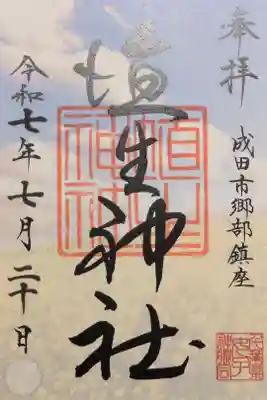 奉拝
成田市郷部鎮座
埴生神社
令和七年七月二十日